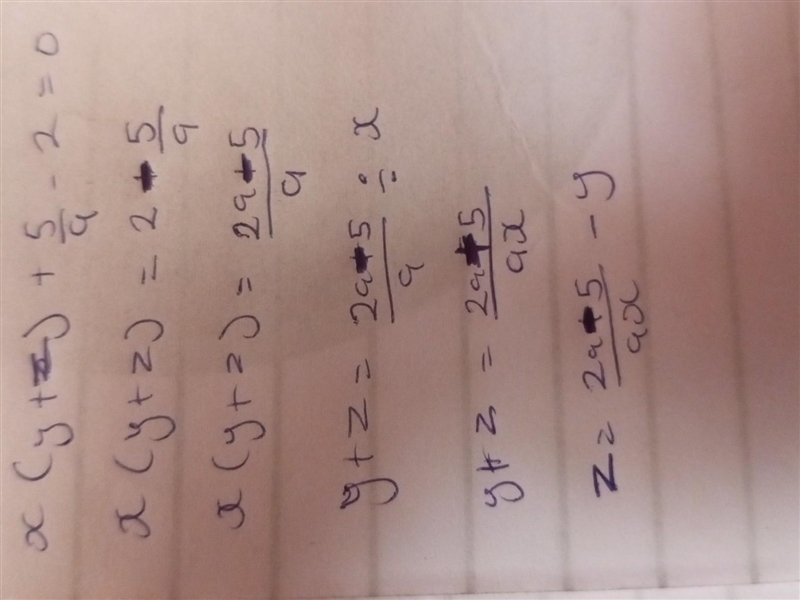 x(y+z) + 5/a - 2 = 0
x(y+z) = 2 - 5/a
x(y+z) = (2a-5)/a
y+z = (2a-5)/a ÷ x
y+z = (2a-5)/ax
z = (2a-5)/ax - y